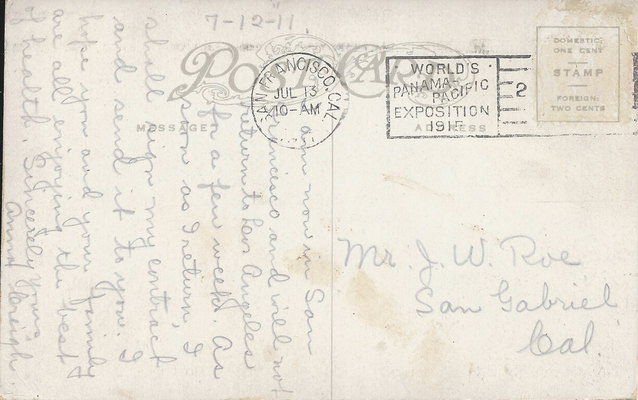 7-12-11
POST CARD
SAN FRANCISCO, CAL.
JUL 13
10-AM
WORLD'S
PANAMA-PACIFIC
EXPOSITION
1915
2
DOMESTIC:
ONE CENT
STAMP
FOREIGN:
TWO CENTS
MESSAGE
ADDRESS
I am now in San
Francisco and will not
return to Los Angeles
for a few weeks. As
soon as I return, I
shall sign my contract
and send it to you. I
hope you and your family
are all enjoying the best
of health. Sincerely yours
Anna
Mr. J. W. Roe
San Gabriel
Cal.